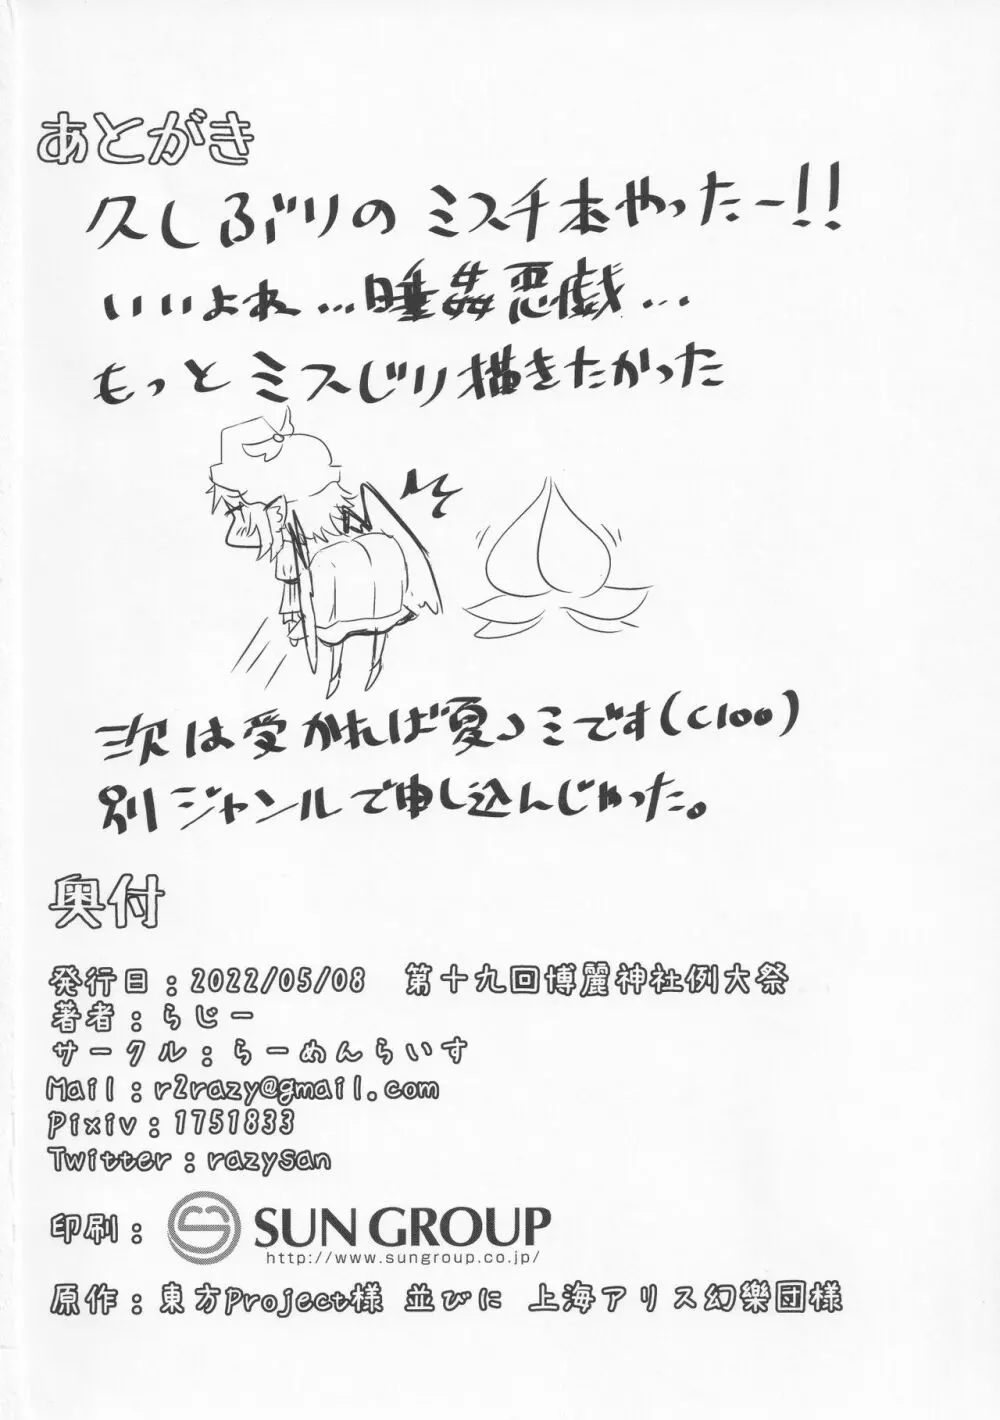 あとがき
久しぶりのミスチ本やったー!!
いいよね…睡姦悪戯…
もっとミスじり描きたかった
次は受かれば夏コミです(C100)
別ジャンルで申し込んじゃった。
奥付
発行日:2022/05/08 第十九回博麗神社例大祭
著者:らじー
サークル:らーめんらいす
Mail:r2razy@gmail.com
Pixiv:1751833
Twitter:razysan
印刷: SUN GROUP
http://www.sungroup.co.jp/
原作:東方Project様 並びに 上海アリス幻樂団様